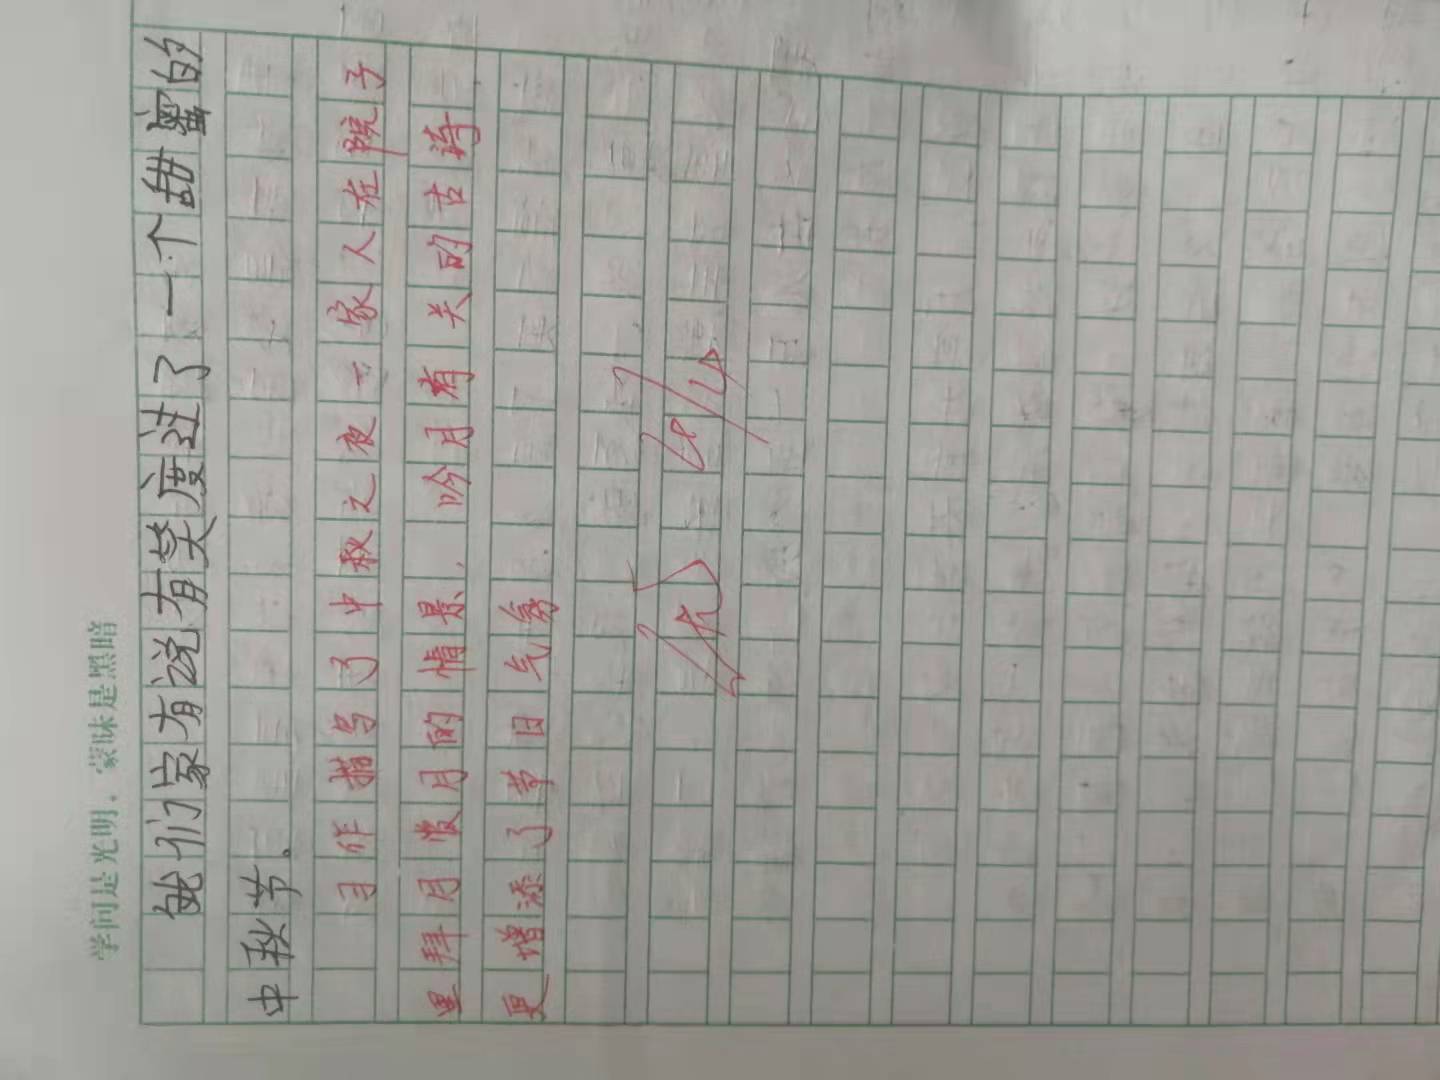 学问是光明，蒙昧是黑暗
我们家有说有笑度过了一个甜蜜的
中秋节。
习作描写了中秋之夜一家人在院子
里拜月赏月的情景，吟月有关的古诗
更增添了节日气氛
优